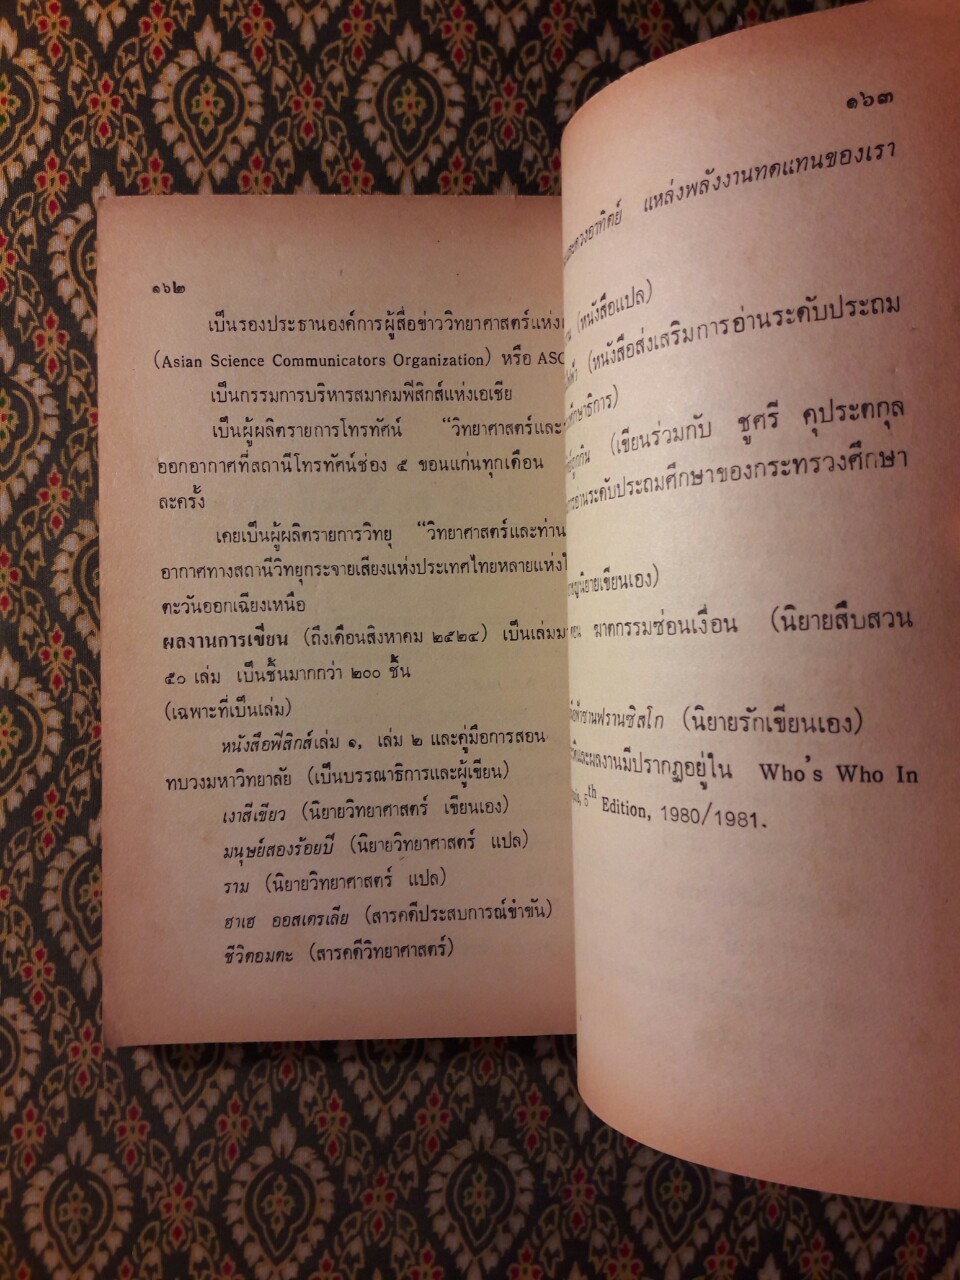 ๑๖๒
เป็นรองประธานองค์การผู้สื่อข่าววิทยาศาสตร์แห่ง
(Asian Science Communicators Organization) หรือ ASC
เป็นกรรมการบริหารสมาคมฟิสิกส์แห่งเอเชีย
เป็นผู้ผลิตรายการโทรทัศน์ “วิทยาศาสตร์และ
ออกอากาศที่สถานีโทรทัศน์ช่อง ๕ ขอนแก่นทุกเดือน
ละครั้ง
เคยเป็นผู้ผลิตรายการวิทยุ “วิทยาศาสตร์และท่าน
อากาศทางสถานีวิทยุกระจายเสียงแห่งประเทศไทยหลายแห่ง
ตะวันออกเฉียงเหนือ
ผลงานการเขียน (ถึงเดือนสิงหาคม ๒๕๒๔) เป็นเล่ม
๕๐ เล่ม เป็นชิ้นมากกว่า ๒๐๐ ชิ้น
(เฉพาะที่เป็นเล่ม)
หนังสือฟิสิกส์เล่ม ๑, เล่ม ๒ และคู่มือการสอน
ทบวงมหาวิทยาลัย (เป็นบรรณาธิการและผู้เขียน)
เงาสีเขียว (นิยายวิทยาศาสตร์ เขียนเอง)
มนุษย์สองร้อยปี (นิยายวิทยาศาสตร์ แปล)
ราม (นิยายวิทยาศาสตร์ แปล)
ฮาเฮ ออสเตรเลีย (สารคดีประสบการณ์ขำขัน)
ชีวิตอมตะ (สารคดีวิทยาศาสตร์)
๑๖๓
ดวงอาทิตย์ แหล่งพลังงานทดแทนของเรา
(หนังสือแปล)
(หนังสือส่งเสริมการอ่านระดับประถม
ศึกษาธิการ)
(เขียนร่วมกับ ชูศรี คุประตกุล
ระดับประถมศึกษาของกระทรวงศึกษา
นิยายเขียนเอง)
ฆาตกรรมซ่อนเงื่อน (นิยายสืบสวน
ซานฟรานซิสโก (นิยายรักเขียนเอง)
และผลงานมีปรากฏอยู่ใน Who's Who In
6th Edition, 1980/1981.